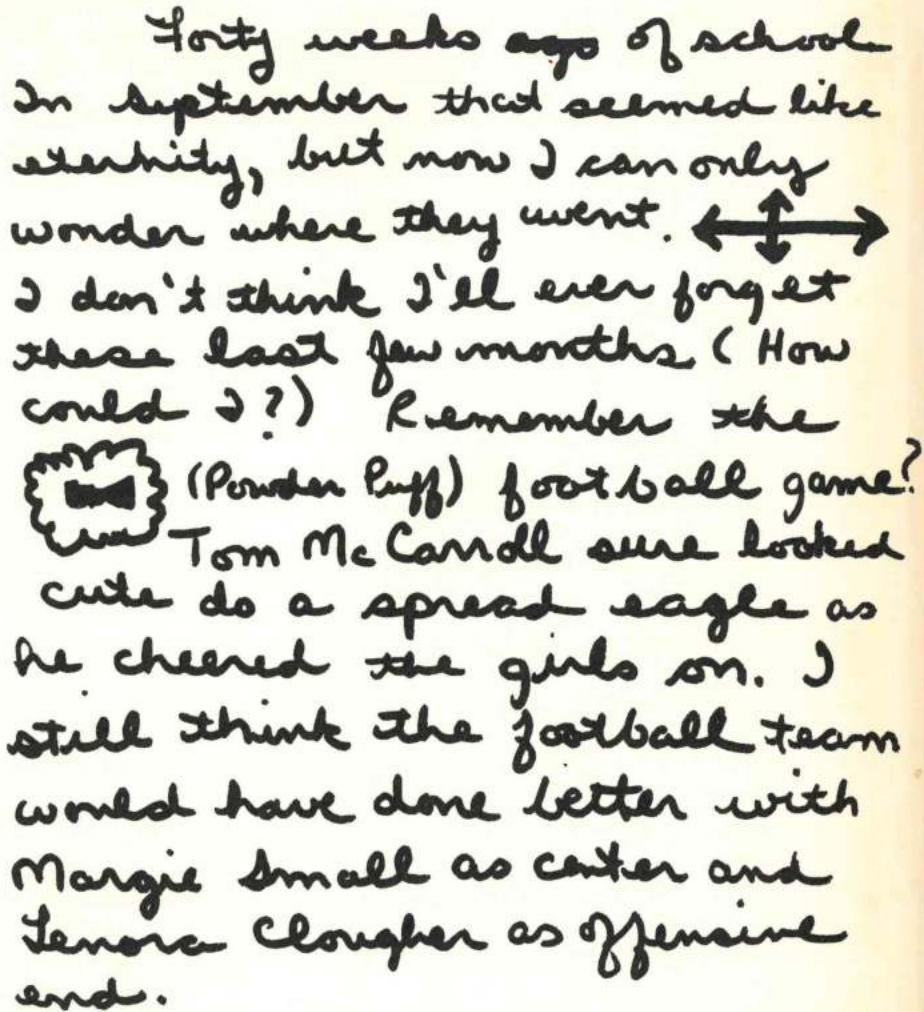 Forty weeks ago of school
In September that seemed like
eternity, but now I can only
wonder where they went.
I don't think I'll ever forget
these last few months (How
could I?) Remember the
(Powder Puff) football game?
Tom McCarroll sure looked
cute do a spread eagle as
he cheered the girls on. I
still think the football team
would have done better with
Margie Small as center and
Lenora Clougher as offensive
end.